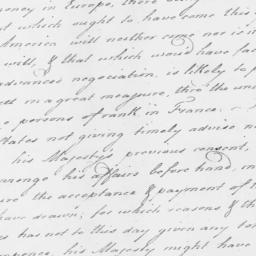 money in Europe, there being
at which ought to have come this
America will neither come nor is it
will, & that which would have fac
advanced negociation, is likely to f
ett in a great measure, thro' the unw
e persons of rank in France;
States not giving timely advise
his Majestys previous consent,
arrange his affairs before hand, in
ure the acceptance & payment of th
have drawn; for which reasons & th
es has not to this day given any tok
pence, his Majesty might have